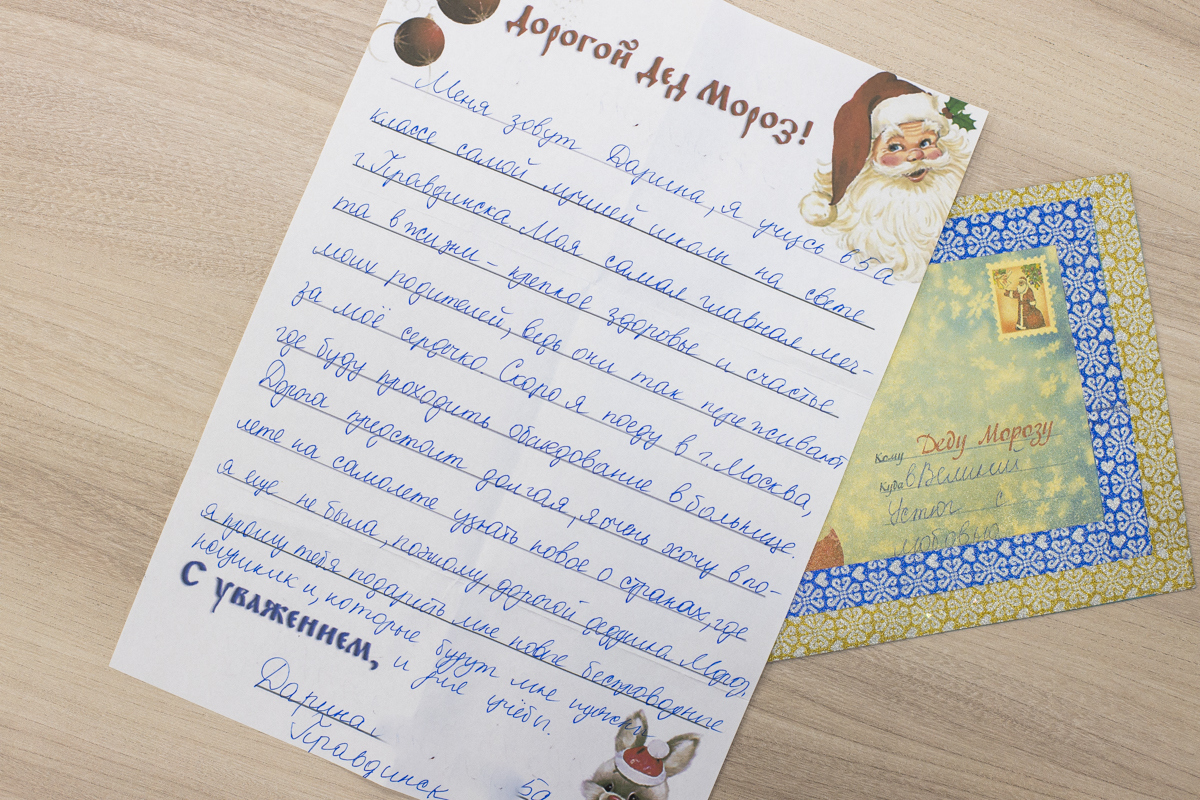 Дорогой Дед Мороз!
Меня зовут Дарина, я учусь в 5А
классе самой лучшей школы на свете
г. Правдинска. Моя самая главная меч-
та в жизни – крепкое здоровье и счастье
моих родителей, ведь они так переживают
за моё сердечко Скоро я поеду в г. Москва,
где буду проходить обследование в больнице.
Дорога предстоит долгая, я очень хочу в по-
лете на самолете узнать новое о странах, где
я еще не была, поэтому, дорогой дедушка Мороз,
я прошу тебя подарить мне новые беспроводные
наушники, которые будут мне нужны
и для учёбы.
С уважением,
Дарина,
Правдинск 5а
Кому Деду Морозу
Куда в Великий
Устюг с
любовью